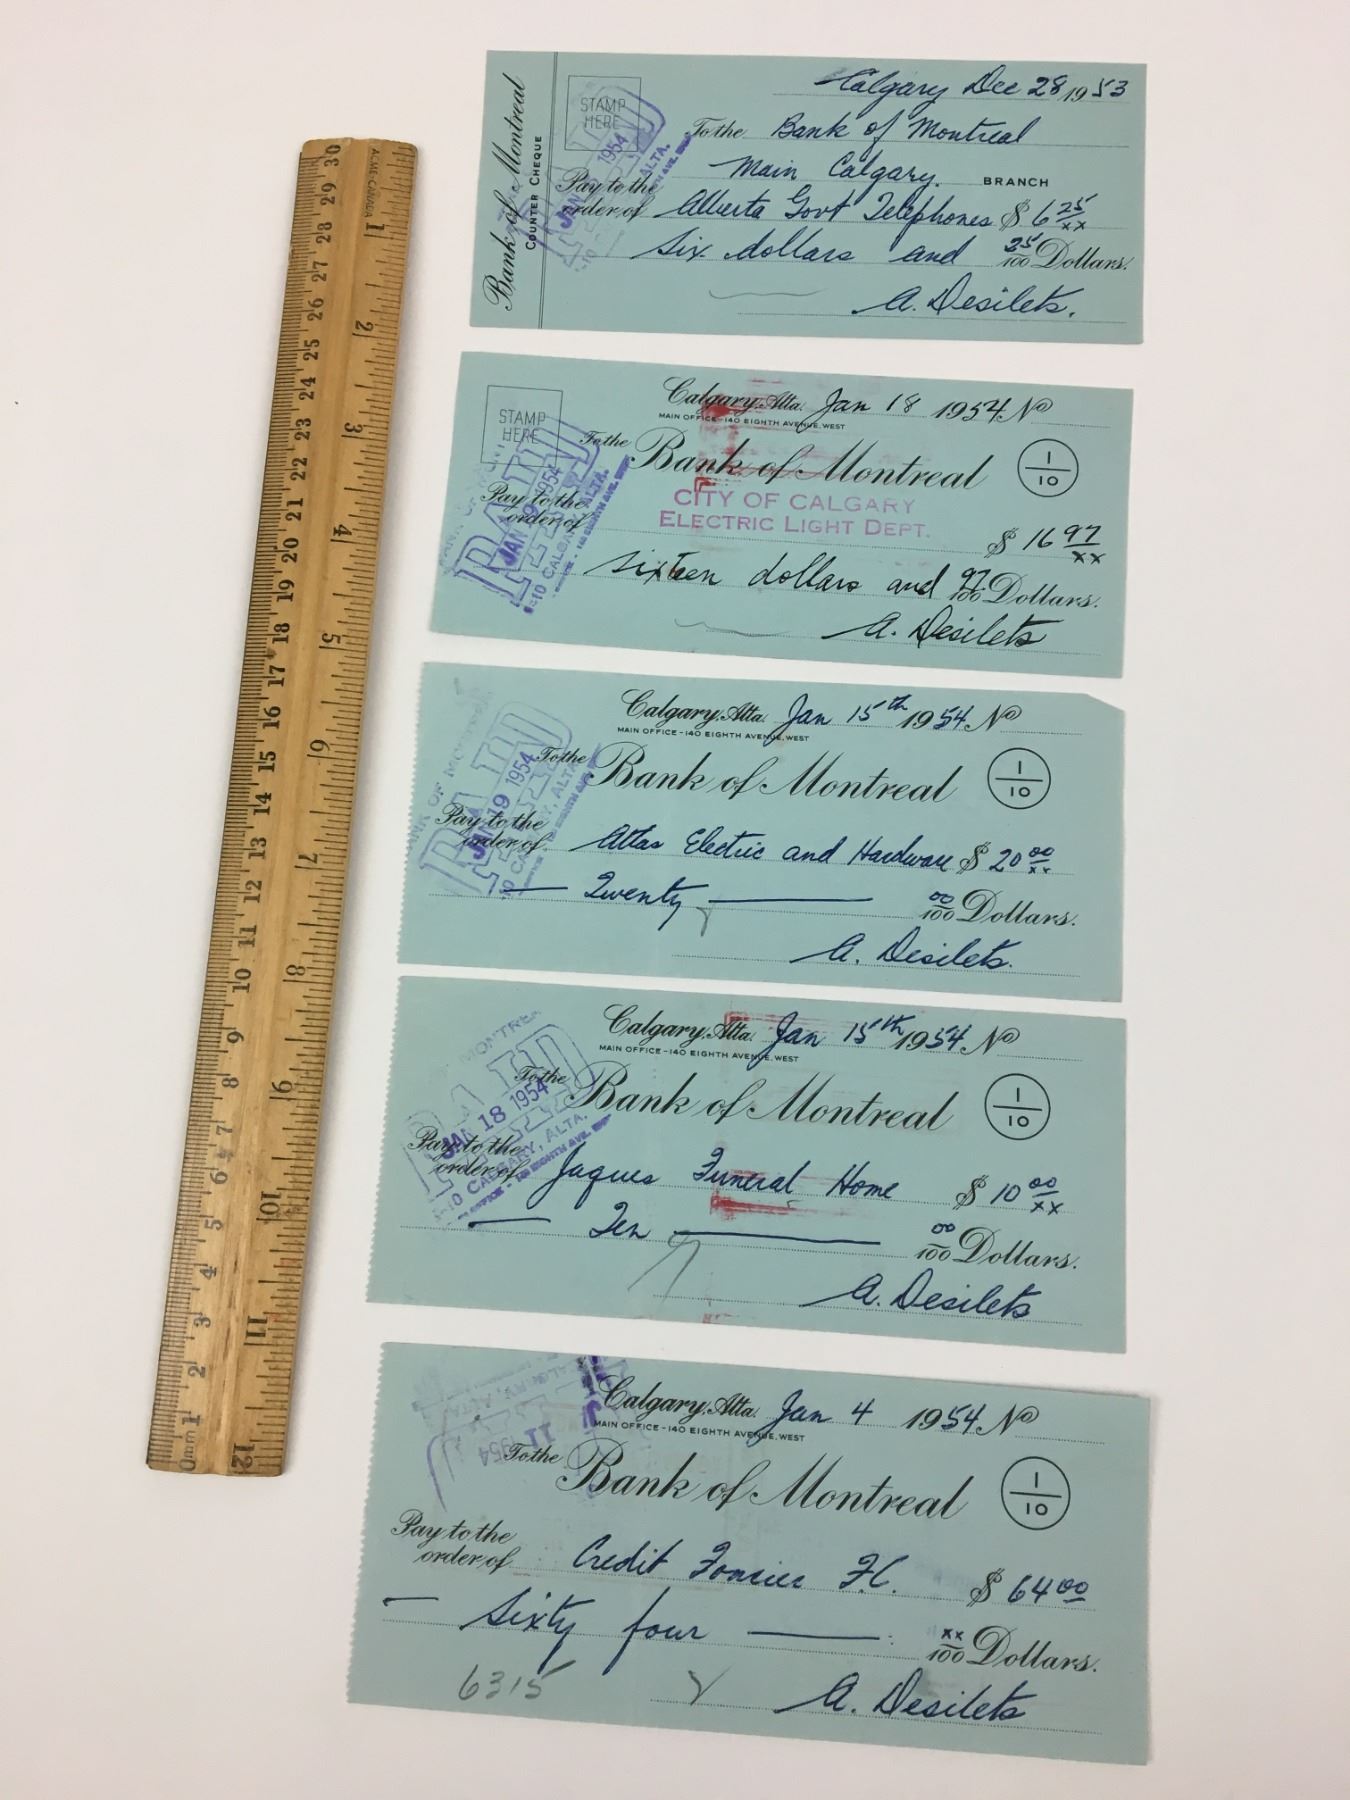 Bank of Montreal
COUNTER CHEQUE
STAMP HERE
Calgary Dec 28 1953
To the Bank of Montreal
Main Calgary. BRANCH
Pay to the order of Alberta Govt Telephones $ 6 25/xx
Six dollars and 25/100 Dollars.
A. Desilets.
PAID
JAN 1954
ALTA.
STAMP HERE
Calgary, Alta. Jan 18 1954 No
MAIN OFFICE - 140 EIGHTH AVENUE, WEST
To the Bank of Montreal
1/10
Pay to the order of CITY OF CALGARY
ELECTRIC LIGHT DEPT.
$ 16 97/xx
Sixteen dollars and 97/100 Dollars.
A. Desilets
PAID
JAN 19 1954
CALGARY, ALTA.
Calgary, Alta. Jan 15th 1954 No
MAIN OFFICE - 140 EIGHTH AVENUE, WEST
To the Bank of Montreal
1/10
Pay to the order of Atlas Electric and Hardware $ 20 00/xx
Twenty 00/100 Dollars.
A. Desilets.
BANK OF MONTREAL
PAID
JAN 19 1954
CALGARY, ALTA.
Calgary, Alta. Jan 15th 1954 No
MAIN OFFICE - 140 EIGHTH AVENUE, WEST
To the Bank of Montreal
1/10
Pay to the order of Jaques Funeral Home $ 10 00/xx
Ten 00/100 Dollars.
A. Desilets
MONTREAL
PAID
JAN 18 1954
CALGARY, ALTA.
Calgary, Alta. Jan 4 1954 No
MAIN OFFICE - 140 EIGHTH AVENUE, WEST
To the Bank of Montreal
1/10
Pay to the order of Credit Foncier F.C. $ 64 00
Sixty four xx/100 Dollars.
A. Desilets
6315
11 1954
CALGARY, ALTA.
ACME-CANADA
30 29 28 27 26 25 24 23 22 21 20 19 18 17 16 15 14 13 12 11 10 9 8 7 6 5 4 3 2 1 0mm
1 2 3 4 5 6 7 8 9 10 11 12